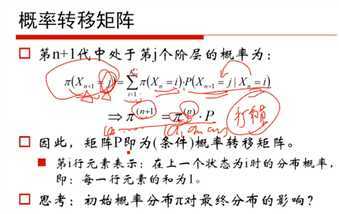 概率转移矩阵
第n+1代中处于第j个阶层的概率为：
π(X_{n+1}=j)=∑_{i=1} π(X_n=i)·P(X_{n+1}=j|X_n=i)
⇒π^{(n+1)}=π^{(n)}·P
因此，矩阵P即为(条件)概率转移矩阵。
第i行元素表示：在上一个状态为i时的分布概率，
即：每一行元素的和为1。
思考：初始概率分布π对最终分布的影响？